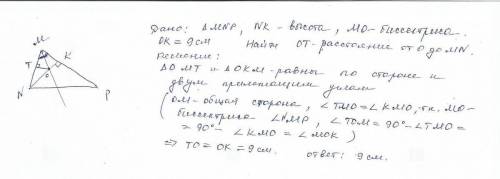 Дано: △MNP, NK - высота, MO - биссектриса.
OK = 9 см Найти OT - расстояние от O до MN.
Решение:
△OMT и △OKM - равны по стороне и
двум прилежащим углам
(OM - общая сторона, ∠TMO = ∠KMO, т.к. MO -
биссектриса ∠NMP, ∠TOM = 90° - ∠TMO =
= 90° - ∠KMO = ∠MOK)
⇒ TO = OK = 9 см. ответ: 9 см.
M
K
T
O
N
P